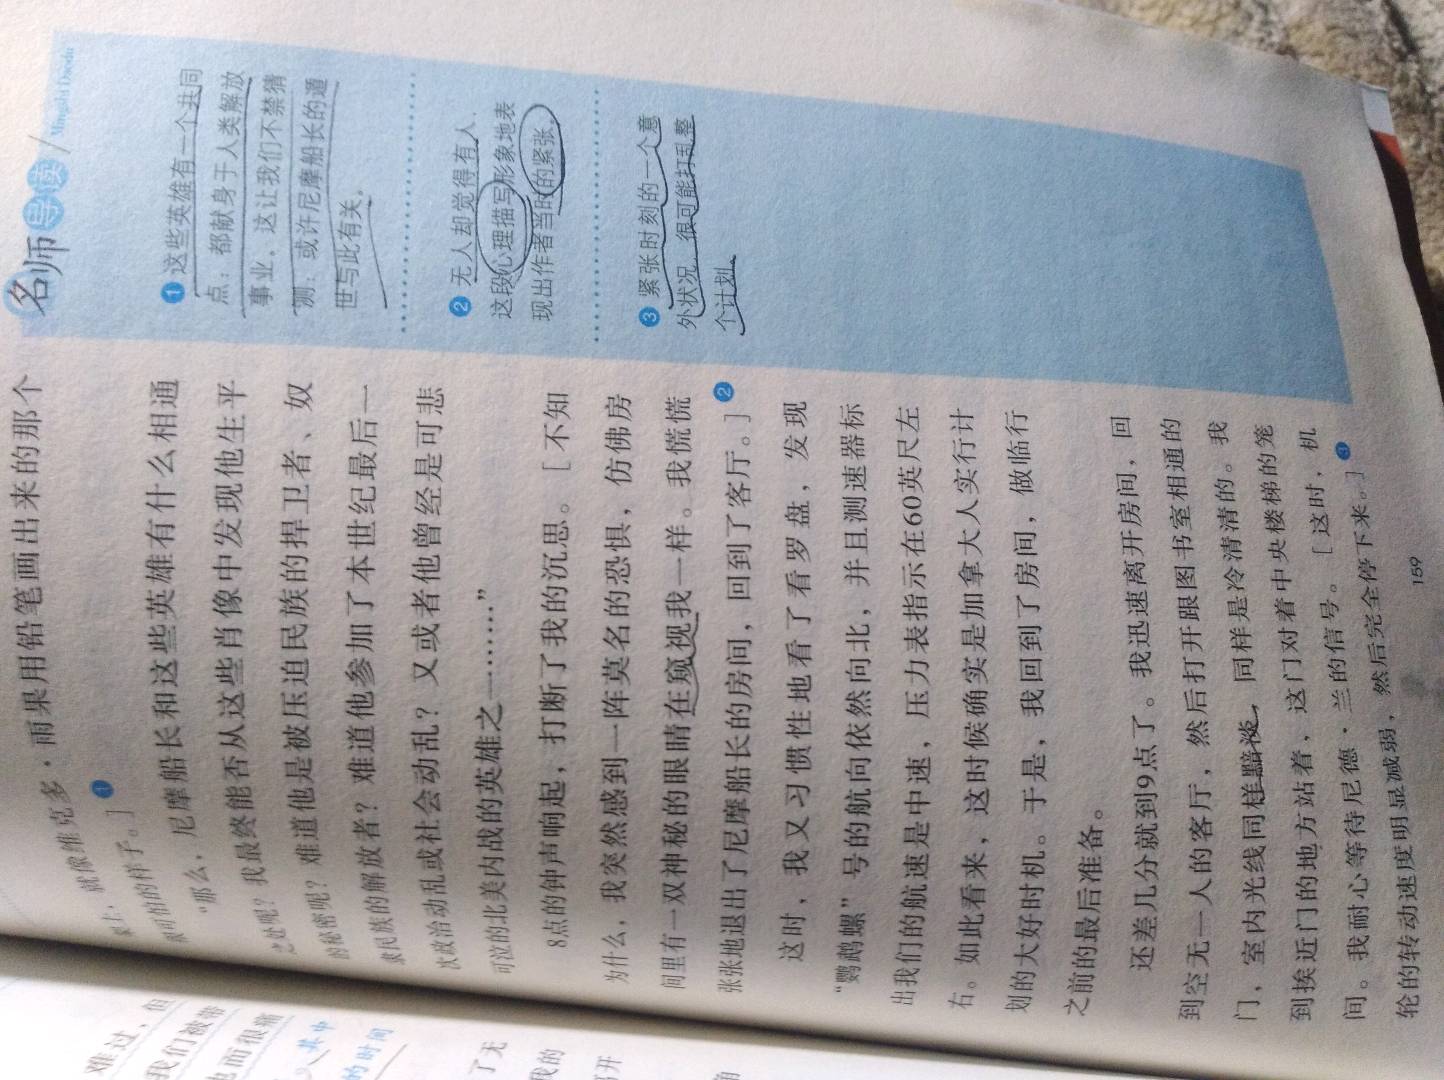 架上，就像维克多·雨果用铅笔画出来的那个
很可怕的样子。］❶
“那么，尼摩船长和这些英雄有什么相通
之处呢？我最终能否从这些肖像中发现他生平
的秘密呢？难道他是被压迫民族的捍卫者、奴
隶民族的解放者？难道他参加了本世纪最后一
次政治动乱或社会动乱？又或者他曾经是可悲
可泣的北美内战的英雄之一……”
8点的钟声响起，打断了我的沉思。［不知
为什么，我突然感到一阵莫名的恐惧，仿佛房
间里有一双神秘的眼睛在窥视我一样。我慌慌
张张地退出了尼摩船长的房间，回到了客厅。］❷
这时，我又习惯性地看了看罗盘，发现
“鹦鹉螺”号的航向依然向北，并且测速器标
出我们的航速是中速，压力表指示在60英尺左
右。如此看来，这时候确实是加拿大人实行计
划的大好时机。于是，我回到了房间，做临行
之前的最后准备。
还差几分就到9点了。我迅速离开房间，回
到空无一人的客厅，然后打开跟图书室相通的
门，室内光线同样黯淡，同样是冷清清的。我
到挨近门的地方站着，这门对着中央楼梯的笼
间。我耐心等待尼德·兰的信号。［这时，机
轮的转动速度明显减弱，然后完全停下来。］❸
159
名师导读
Mingshi Daodu
❶ 这些英雄有一个共同
点：都献身于人类解放
事业，这让我们不禁猜
测：或许尼摩船长的遁
世与此有关。
❷ 无人却觉得有人，
这段心理描写形象地表
现出作者当时的紧张。
❸ 紧张时刻的一个意
外状况，很可能打乱整
个计划。
难过，但
我们被带
也而很新
其中
的时间
了无
我的
开